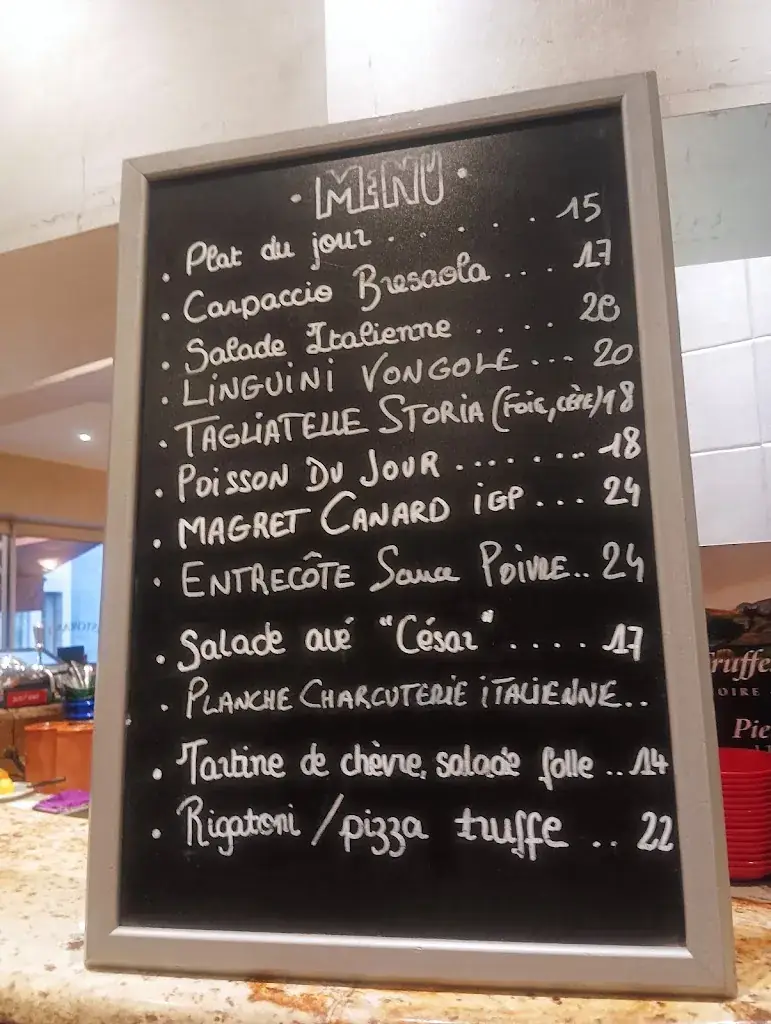 · MENU ·
· Plat du jour . . . . . . 15
· Carpaccio Bresaola .... 17
· Salade Italienne .... 20
· LINGUINI VONGOLE ... 20
· TAGLIATELLE STORIA (FOIE, CÈPE) 18
· POISSON DU JOUR ....... 18
· MAGRET CANARD iGP ... 24
· ENTRECÔTE Sauce POIVRE.. 24
· Salade avé "César" .... 17
· PLANCHE CHARCUTERIE iTALIENNE..
· Tartine de chèvre, salade folle .. 14
· Rigatoni / pizza truffe .. 22
ruffe
OIRE
Pie